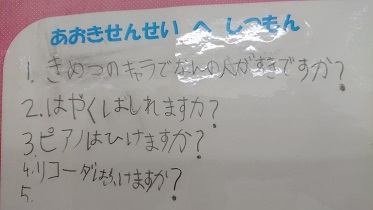 あおきせんせい へ しつもん
1. きめつのキャラでなんの人がすきですか?
2. はやくはしれますか?
3. ピアノはひけますか?
4. リコーダはふけますか?
5.